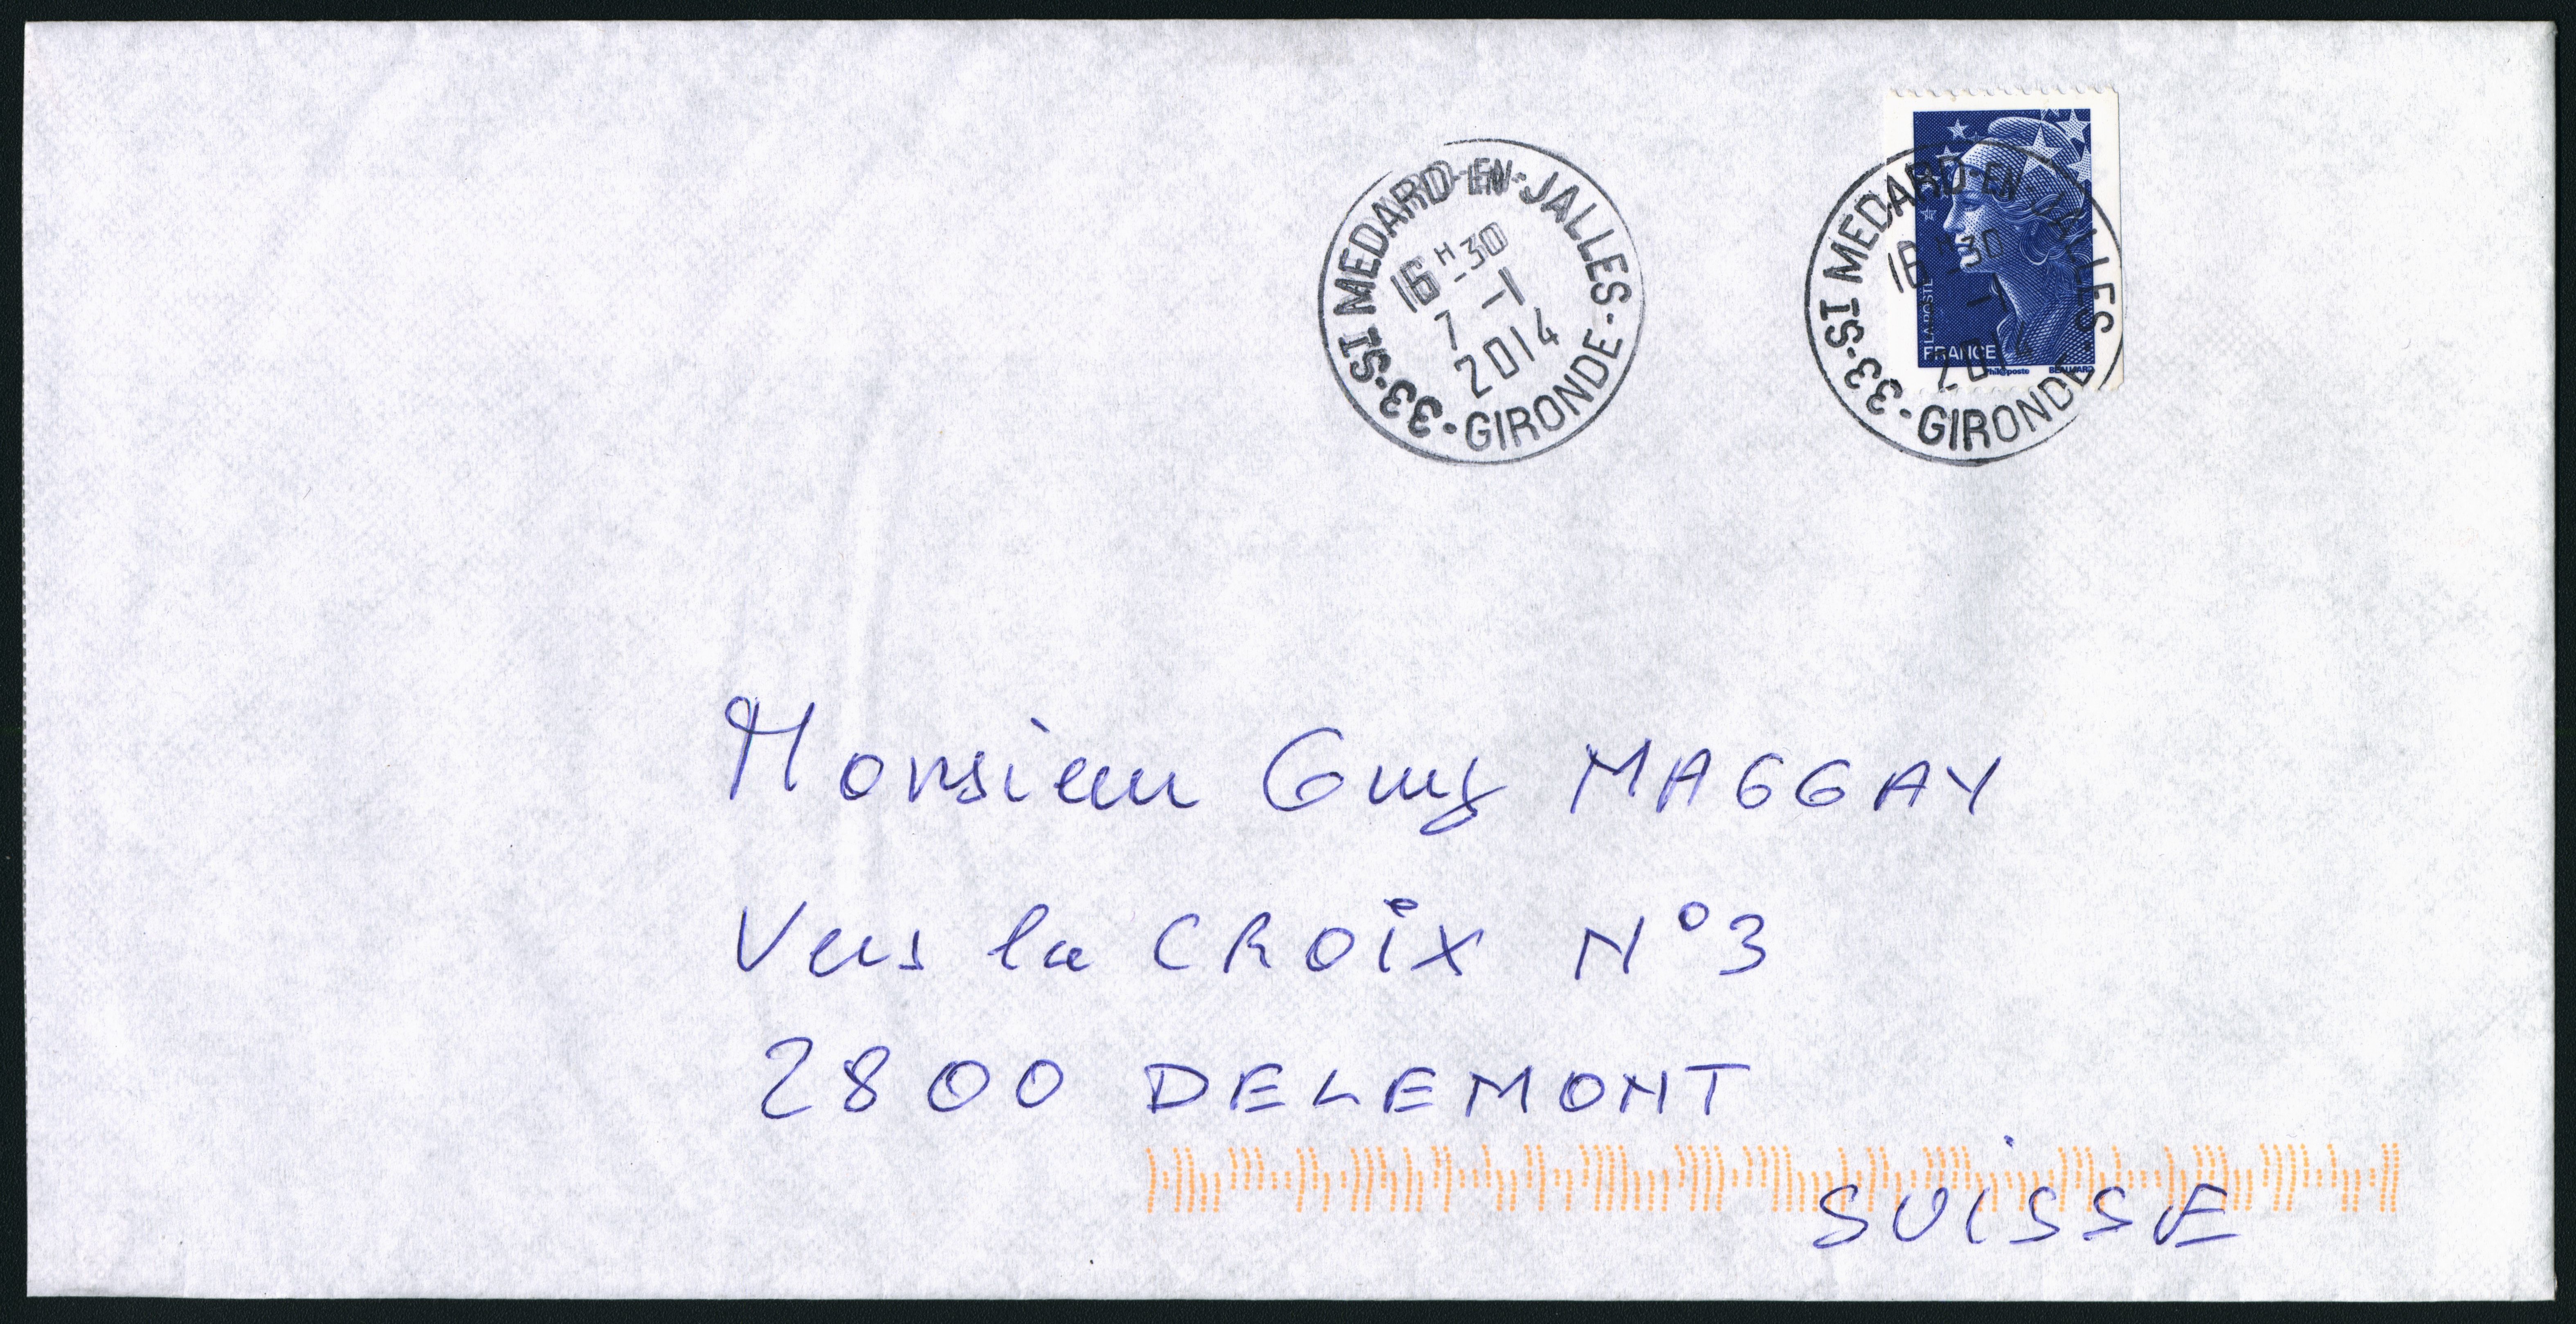 33-ST MEDARD-EN-JALLES-S
GIRONDE
16H30
7-1
2014
33-ST MEDARD-EN-JALLES
GIRONDE
16H30
-1
2014
LA POSTE
FRANCE
Phil@poste
BEAUJARD
Monsieur Guy MAGGAY
Vers la CROIX N°3
2800 DELEMONT
SUISSE